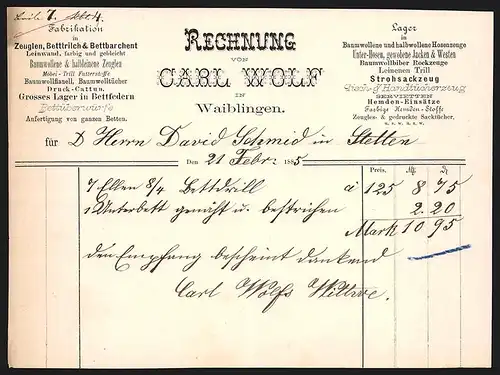 Fabrikation
in
Zeuglen, Bettdrilch & Bettbarchent
Leinwand, farbig und gebleicht
Baumwollene & halbleinene Zeuglen
Möbel-Trill Futterstoffe
Baumwollflanell, Baumwolltücher
Druck-Cattun.
Grosses Lager in Bettfedern
Bettüberwürfe
Anfertigung von ganzen Betten.
RECHNUNG
VON
CARL WOLF
IN
Waiblingen.
Lager
in
Baumwollene und halbwollene Hosenzeuge
Unter-Hosen, gewobene Jacken & Westen
Baumwollbiber Rockzeuge
Leinenen Trill
Strohsackzeug
Tisch- & Handtücherzeug
SERVIETTEN
Hemden-Einsätze
Farbige Hemden-Stoffe
Zeugles- & gedruckte Sacktücher,
u. s. w. u. s. w.
für D Herrn David Schmid in Stetten
Den 21 Febr: 1885
Preis. M. D.
7 Ellen 8/4 Bettdrill à 125 8 75
1 Unterbett genäht u. bestrichen 2.20
Mark 10 95
den Empfang bescheint dankend
Carl Wolfs Wittwe.